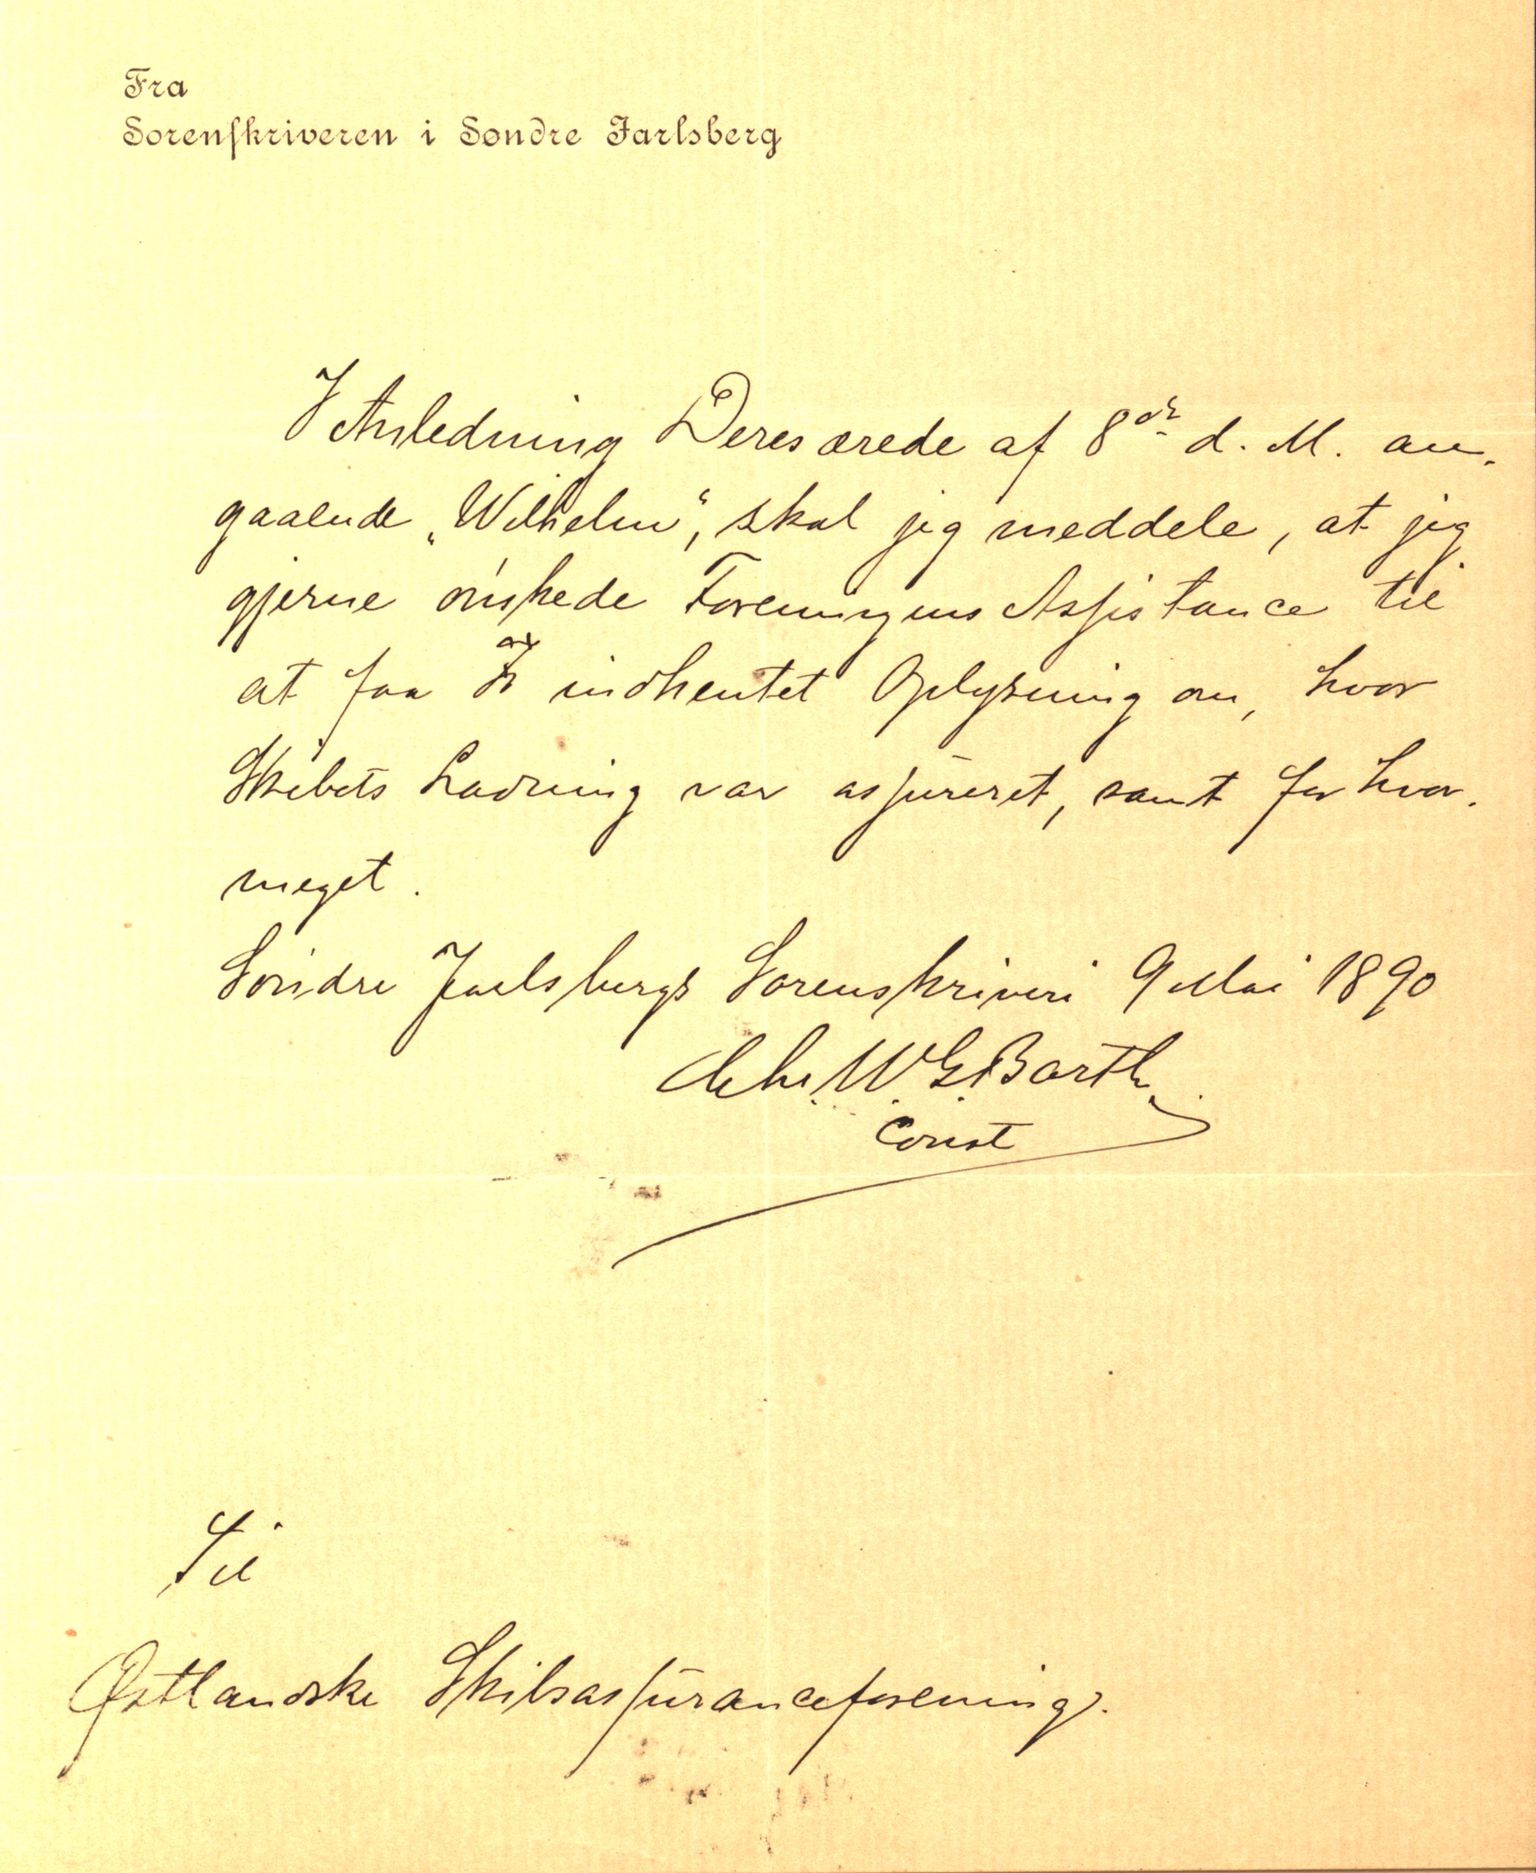 Fra
Sorenskriveren i Søndre Jarlsberg
I Anledning Deres ærede af 8de d. M. an-
gaaende „Wilhelm“, skal jeg meddele, at jeg
gjerne ønskede Foreningens Assistance til
at faa indhentet Oplysning om, hvor
Skibets Ladning var assureret, samt for hvor-
meget.
Søndre Jarlsbergs Sorenskriveri 9 Mai 1890
W. G. Barth
Const
Til
Østlandske Skibsassuranceforening.